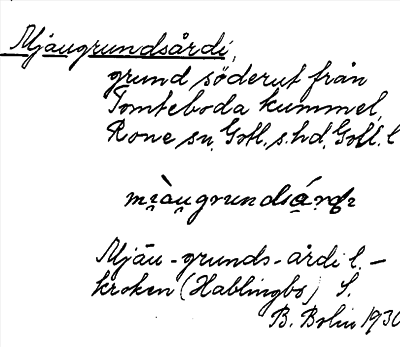 Mjäugrundsårdi,
grund söderut från
Tomteboda kummel,
Rone sn, Gotl. s. hd, Gotl. l
mi̯àu̯grundsá̱rdı
Mjäu-grunds-årdi l. -
kroken (Hablingbo) S.
B. Bolin 1930